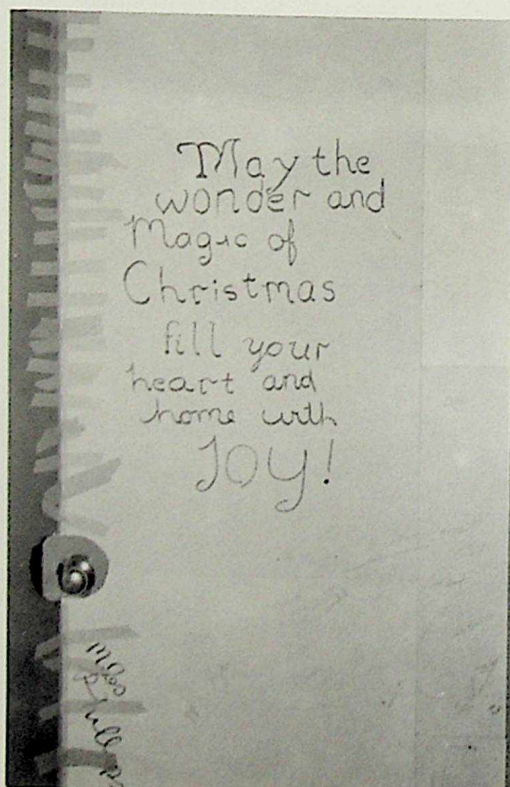 May the
wonder and
Magic of
Christmas
fill your
heart and
home with
JOY!